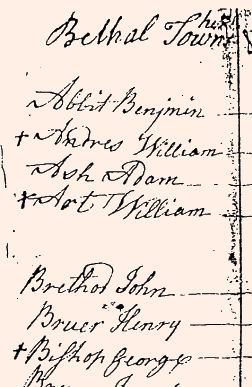 Bethal Township
Abbit Benjmin
+ Andres William
Ash Adam
+ Art William
Brethod John
Bruer Henry
+ Bishop George